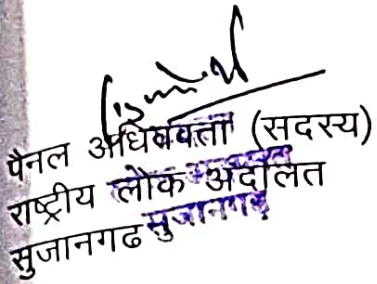 पैनल अधिवक्ता (सदस्य)
राष्ट्रीय लोक अदालत
सुजानगढ सुजानगढ़